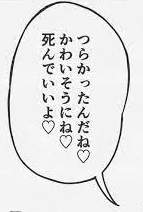 つらかったんだね♡
かわいそうにね♡
死んでいいよ♡